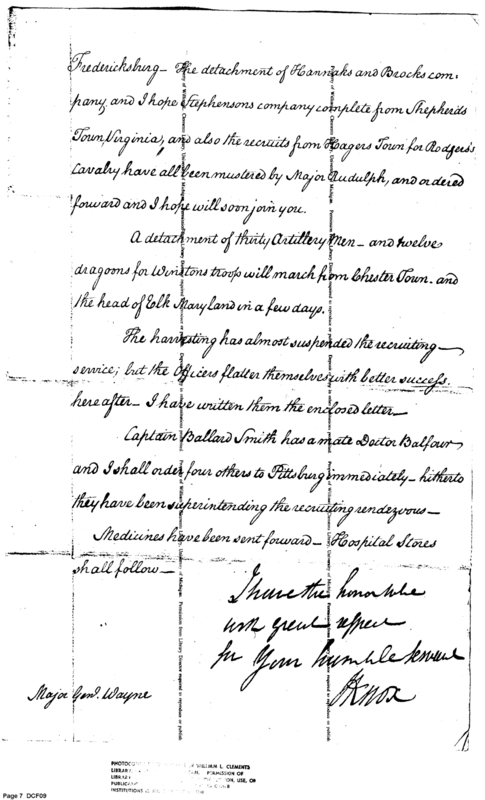 Fredericksburg - The detachment of Hannaks and Brocks com-
pany, and I hope Stephensons company complete from Shepherds
Town Virginia, and also the recruits from Hagers Town for Rodgers's
Cavalry have all been mustered by Major Rudulph, and ordered
forward and I hope will soon join you.
A detachment of thirty Artillery Men - and twelve
dragoons for Winstons troop will march from Chester Town - and
the head of Elk Maryland in a few days.
The harvesting has almost suspended the recruiting -
service; but the Officers flatter themselves with better success
hereafter - I have written them the enclosed letter -
Captain Ballard Smith has a mate Doctor Balfour
and I shall order four others to Pittsburg immediately - hitherto
they have been superintending the recruiting rendezvous -
Medicines have been sent forward - Hospital Stores
shall follow -
I have the honor to be
with great respect
Sir Your humble servant
HKnox
Major Genl. Wayne
WILLIAM L. CLEMENTS
LIBRARY PERMISSION OF
USE, OR
Page 7 DCF09